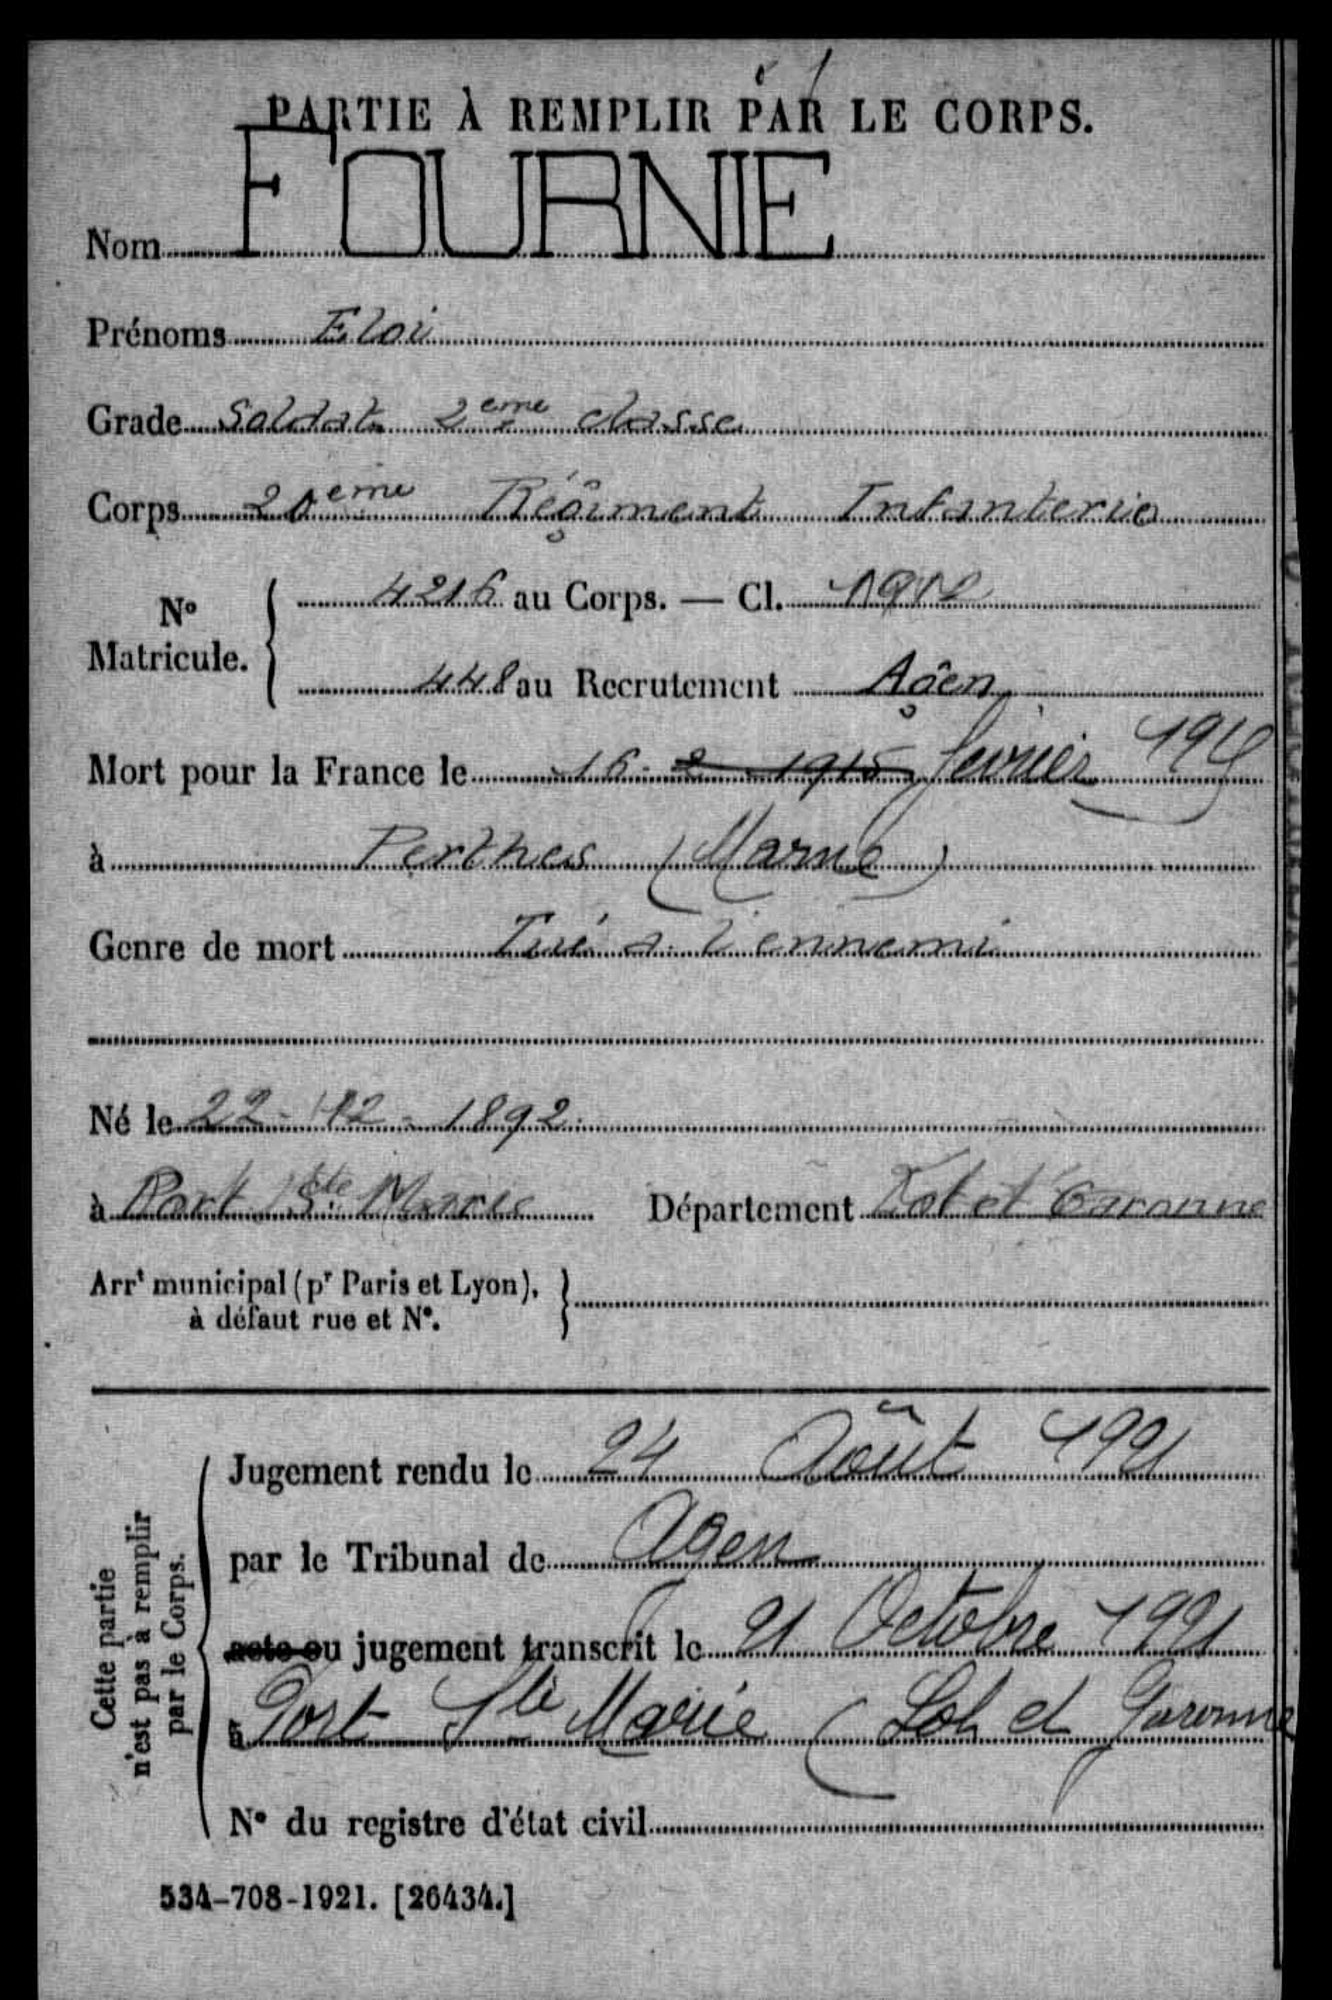 PARTIE À REMPLIR PAR LE CORPS.
Nom FOURNIE
Prénoms Eloi
Grade Soldat 2eme classe
Corps 20eme Régiment Infanterie
No Matricule. 4216 au Corps. — Cl. 1912
448 au Recrutement Agen
Mort pour la France le 16 - 2 - 1915 fevrier 1915
à Perthes (Marne)
Genre de mort Tué à l'ennemi
Né le 22 - 12 - 1892.
à Port Ste Marie Département Lot et Garonne
Arrt municipal (pr Paris et Lyon),
à défaut rue et No.
Cette partie
n'est pas à remplir
par le Corps.
Jugement rendu le 24 Août 1921
par le Tribunal de Agen
acte ou jugement transcrit le 21 Octobre 1921
à Port Ste Marie (Lot et Garonne
No du registre d'état civil
534-708-1921. [26434.]